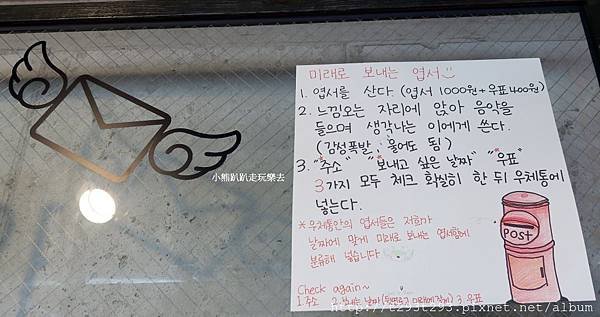 미래로 보내는 엽서
1. 엽서를 산다. (엽서 1000원 + 우표 400원)
2. 느낌오는 자리에 앉아 음악을
들으며 생각나는 이에게 쓴다.
(감성폭발, 울어도 됨)
3. "주소" "보내고 싶은 날짜" "우표"
3가지 모두 체크 확실히 한 뒤 우체통에
넣는다.
*우체통안의 엽서들은 저희가
날짜에 맞게 미래로 보내는 엽서함에
분류해 넣습니다
Check again~
1.주소 2.보내는 날짜 3.우표
POST
小熊趴趴走玩樂去